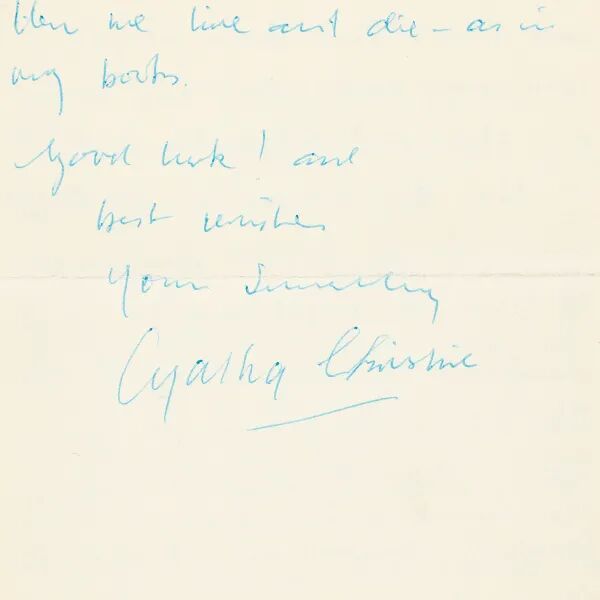 we live and die – as in
my books.
Good luck! and
best wishes
Yours Sincerely
Agatha Christie